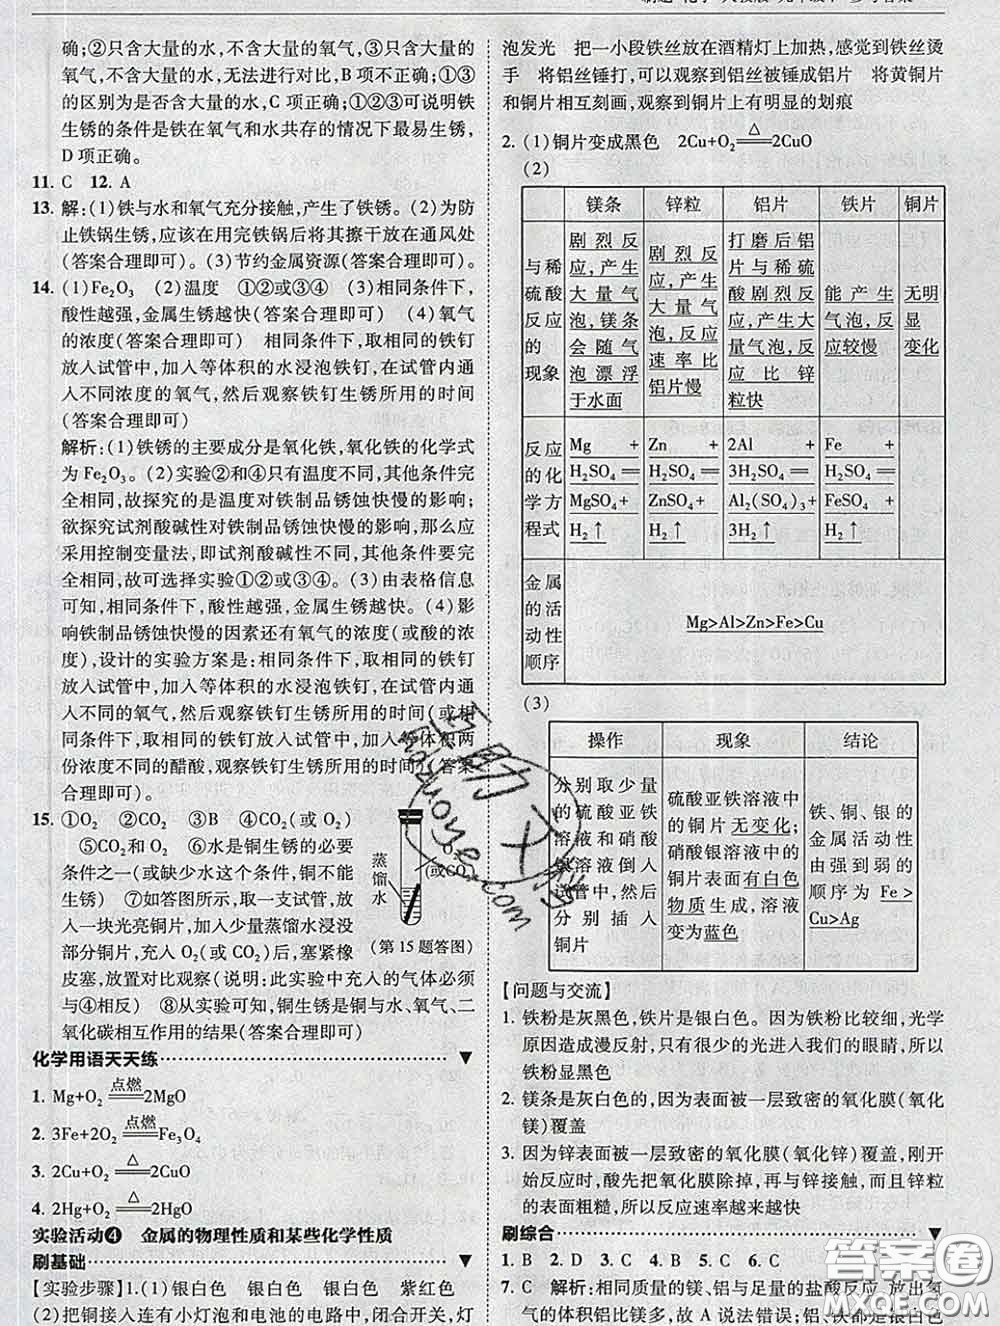 确;②只含大量的水,不含大量的氧气,③含大量的
氧气,不含大量的水,无法进行对比,B项不正确;①③
的区别为是否含大量的水,C项正确;①②③可说明铁
生锈的条件是铁在氧气和水共存的情况下最易生锈,
D项正确。
11. C 12. A
13. 解:(1)铁与水和氧气充分接触,产生了铁锈。(2)为防
止铁锅生锈,应该在用完铁锅后将其擦干放在通风处
(答案合理即可)。(3)节约金属资源(答案合理即可)。
14. (1)Fe₂O₃ (2)温度 ①②或③④ (3)相同条件下,
酸性越强,金属生锈越快(答案合理即可) (4)氧气
的浓度(答案合理即可) 相同条件下,取相同的铁钉
放入试管中,加入等体积的水浸泡铁钉,在试管内通
入不同浓度的氧气,然后观察铁钉生锈所用的时间
(答案合理即可)
解析:(1)铁锈的主要成分是氧化铁,氧化铁的化学式
为Fe₂O₃。(2)实验②和④只有温度不同,其他条件完
全相同,故探究的是温度对铁制品锈蚀快慢的影响;
欲探究试剂酸碱性对铁制品锈蚀快慢的影响,那么应
采用控制变量法,即试剂酸碱性不同,其他条件要完
全相同,故可选择实验①②或③④。(3)由表格信息
可知,相同条件下,酸性越强,金属生锈越快。(4)影
响铁制品锈蚀快慢的因素还有氧气的浓度(或酸的浓
度),设计的实验方案是:相同条件下,取相同的铁钉
放入试管中,加入等体积的水浸泡铁钉,在试管内通
入不同的氧气,然后观察铁钉生锈所用的时间(或相
同条件下,取相同的铁钉放入试管中,加入等体积两
份浓度不同的醋酸,观察铁钉生锈所用的时间)(答案
合理即可)。
15. ①O₂ ②CO₂ ③B ④CO₂(或O₂)
⑤CO₂和O₂ ⑥水是铜生锈的必要
条件之一(或缺少水这个条件,铜不能
生锈) ⑦如答图所示,取一支试管,放
入一块光亮铜片,加入少量蒸馏水浸没
部分铜片,充入O₂(或CO₂)后,塞紧橡
皮塞,放置对比观察(说明:此实验中充入的气体必须
与④相反) ⑧从实验可知,铜生锈是铜与水、氧气、二
氧化碳相互作用的结果(答案合理即可)
蒸馏水
(或CO
(第15题答图)
化学用语天天练
1. Mg+O₂ 点燃 2MgO
2. 3Fe+2O₂ 点燃 Fe₃O₄
3. 2Cu+O₂ △ 2CuO
4. 2Hg+O₂ △ 2HgO
实验活动❹ 金属的物理性质和某些化学性质
刷基础
【实验步骤】1.(1)银白色 银白色 银白色 紫红色
(2)把铜接入连有小灯泡和电池的电路中,闭合开关,灯
泡发光 把一小段铁丝放在酒精灯上加热,感觉到铁丝烫
手 将铝丝锤打,可以观察到铝丝被锤成铝片 将黄铜片
和铜片相互刻画,观察到铜片上有明显的划痕
2. (1)铜片变成黑色 2Cu+O₂ △ 2CuO
(2)
镁条 锌粒 铝片 铁片 铜片
与稀硫酸反应的现象 剧烈反应,产生大量气泡,镁条会随气泡漂浮于水面 剧烈反应,产生大量气泡,反应速率比铝片慢 打磨后铝片与稀硫酸剧烈反应,产生大量气泡,反应比锌粒快 能产生气泡,反应较慢 无明显变化
反应的化学方程式 Mg + H₂SO₄ ═ MgSO₄ + H₂↑ Zn + H₂SO₄ ═ ZnSO₄ + H₂↑ 2Al + 3H₂SO₄ ═ Al₂(SO₄)₃ + 3H₂↑ Fe + H₂SO₄ ═ FeSO₄ + H₂↑
金属的活动性顺序 Mg>Al>Zn>Fe>Cu
(3)
操作 现象 结论
分别取少量的硫酸亚铁溶液和硝酸银溶液倒入试管中,然后分别插入铜片 硫酸亚铁溶液中的铜片无变化;硝酸银溶液中的铜片表面有白色物质生成,溶液变为蓝色 铁、铜、银的金属活动性由强到弱的顺序为Fe>Cu>Ag
【问题与交流】
1. 铁粉是灰黑色,铁片是银白色。因为铁粉比较细,光学
原因造成漫反射,只有很少的光进入我们的眼睛,所以
铁粉显黑色
2. 镁条是灰白色的,因为表面被一层致密的氧化膜(氧化
镁)覆盖
3. 因为锌表面被一层致密的氧化膜(氧化锌)覆盖,刚开
始反应时,酸先把氧化膜除掉,再与锌接触,而且锌粒
的表面粗糙,所以反应速率越来越快
刷综合
1. B 2. D 3. C 4. B 5. C 6. C
7. C 解析:相同质量的镁、铝与足量的盐酸反应,放出氢
气的体积铝比镁多,故A说法错误;铝、铁都是银白色
答案圈
MXQE.COM